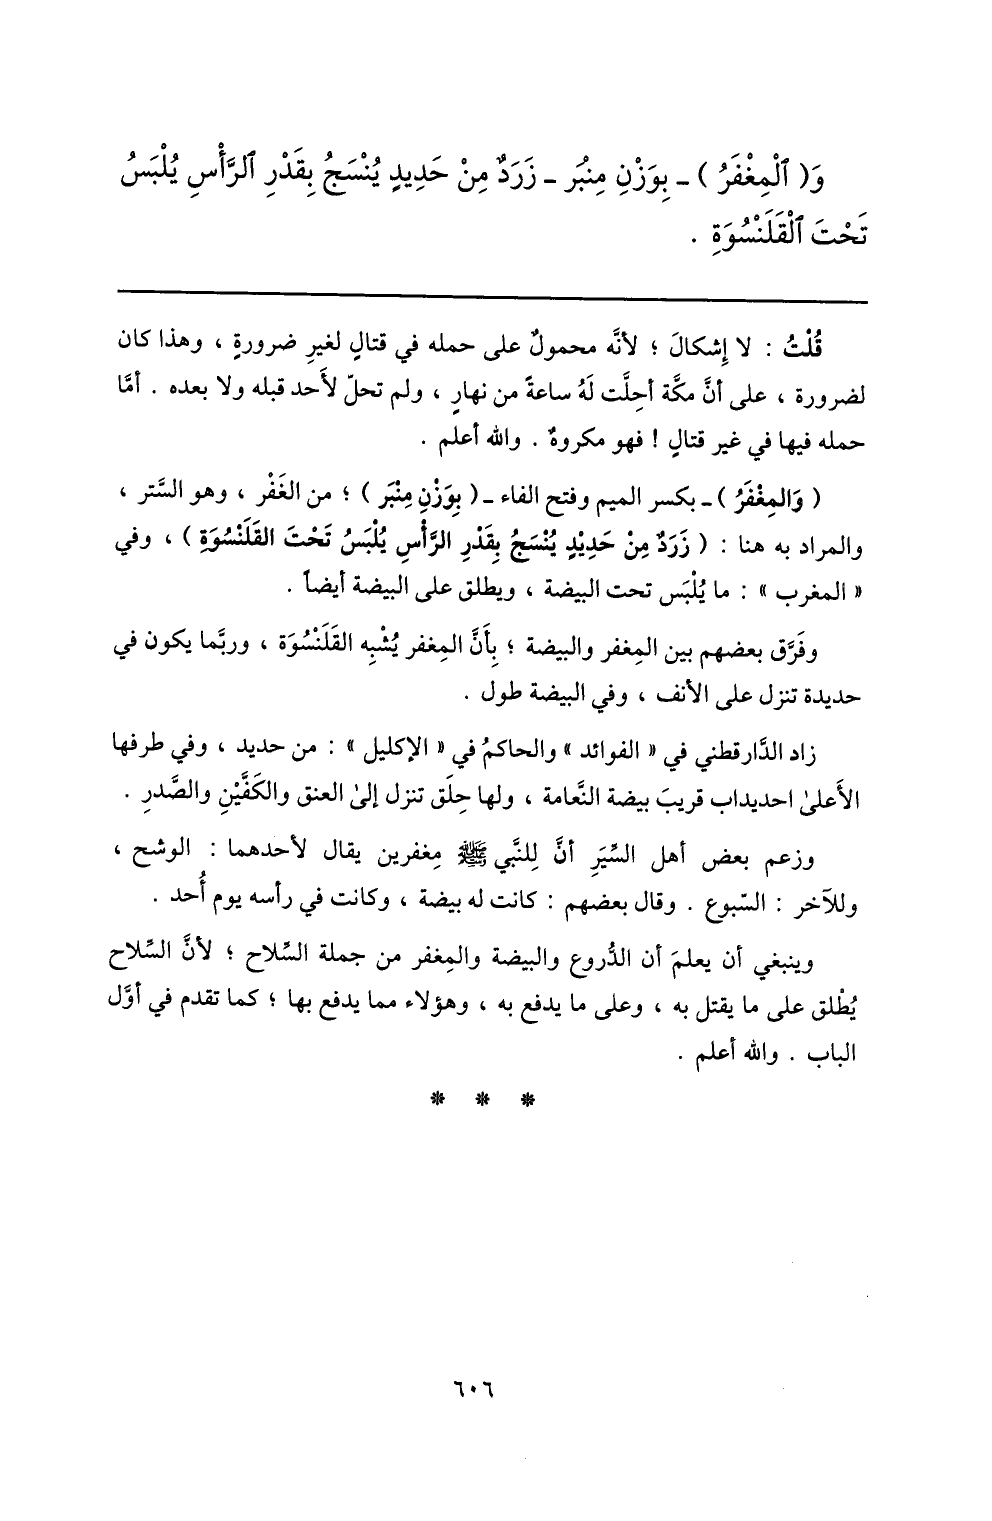 وَ( ٱلْمِغْفَرُ ) ـ بِوَزْنِ مِنْبَر ـ زَرَدٌ مِنْ حَدِيدٍ يُنْسَجُ بِقَدْرِ ٱلرَّأْسِ يُلْبَسُ
تَحْتَ ٱلْقَلَنْسُوَةِ .
قُلْتُ : لا إِشكالَ ؛ لأنَّه محمولٌ على حمله في قتالٍ لغيرِ ضرورةٍ ، وهذا كان
لضرورة ، على أنَّ مكَّة أحِلَّت لَهُ ساعةً من نهارٍ ، ولم تحلّ لأَحد قبله ولا بعده . أمَّا
حمله فيها في غير قتالٍ ! فهو مكروهٌ . والله أعلم .
( وَالمِغْفَرُ ) ـ بكسر الميم وفتح الفاء ـ ( بِوَزْنِ مِنْبَر ) ؛ من الغَفْر ، وهو السَّتر ،
والمراد به هنا : ( زَرَدٌ مِنْ حَدِيْدٍ يُنْسَجُ بِقَدْرِ الرَّأْسِ يُلْبَسُ تَحْتَ القَلَنْسُوَةِ ) ، وفي
« المغرب » : ما يُلْبَس تحت البيضة ، ويطلق على البيضة أيضاً .
وفَرَّق بعضهم بين المِغفر والبيضة ؛ بِأَنَّ المِغفر يُشْبِه القَلَنْسُوَة ، وربَّما يكون في
حديدة تنزل على الأنف ، وفي البيضة طول .
زاد الدَّارقطني في « الفوائد » والحاكمُ في « الإكليل » : من حديد ، وفي طرفها
الأَعلىٰ احديداب قريبَ بيضة النَّعامة ، ولها حِلَق تنزل إلىٰ العنق والكَفَّيْنِ والصَّدرِ .
وزعم بعض أهل السِّيَرِ أنَّ لِلنَّبي ﷺ مِغفرين يقال لأحدهما : الوشح ،
وللآخر : السّبوع . وقال بعضهم : كانت له بيضة ، وكانت في رأسه يوم أُحد .
وينبغي أن يعلمَ أن الدُّروع والبيضة والمِغفر من جملة السِّلاح ؛ لأنَّ السِّلاح
يُطْلق على ما يقتل به ، وعلى ما يدفع به ، وهؤلاء مما يدفع بها ؛ كما تقدم في أوَّل
الباب . والله أعلم .
* * *
٦٠٦